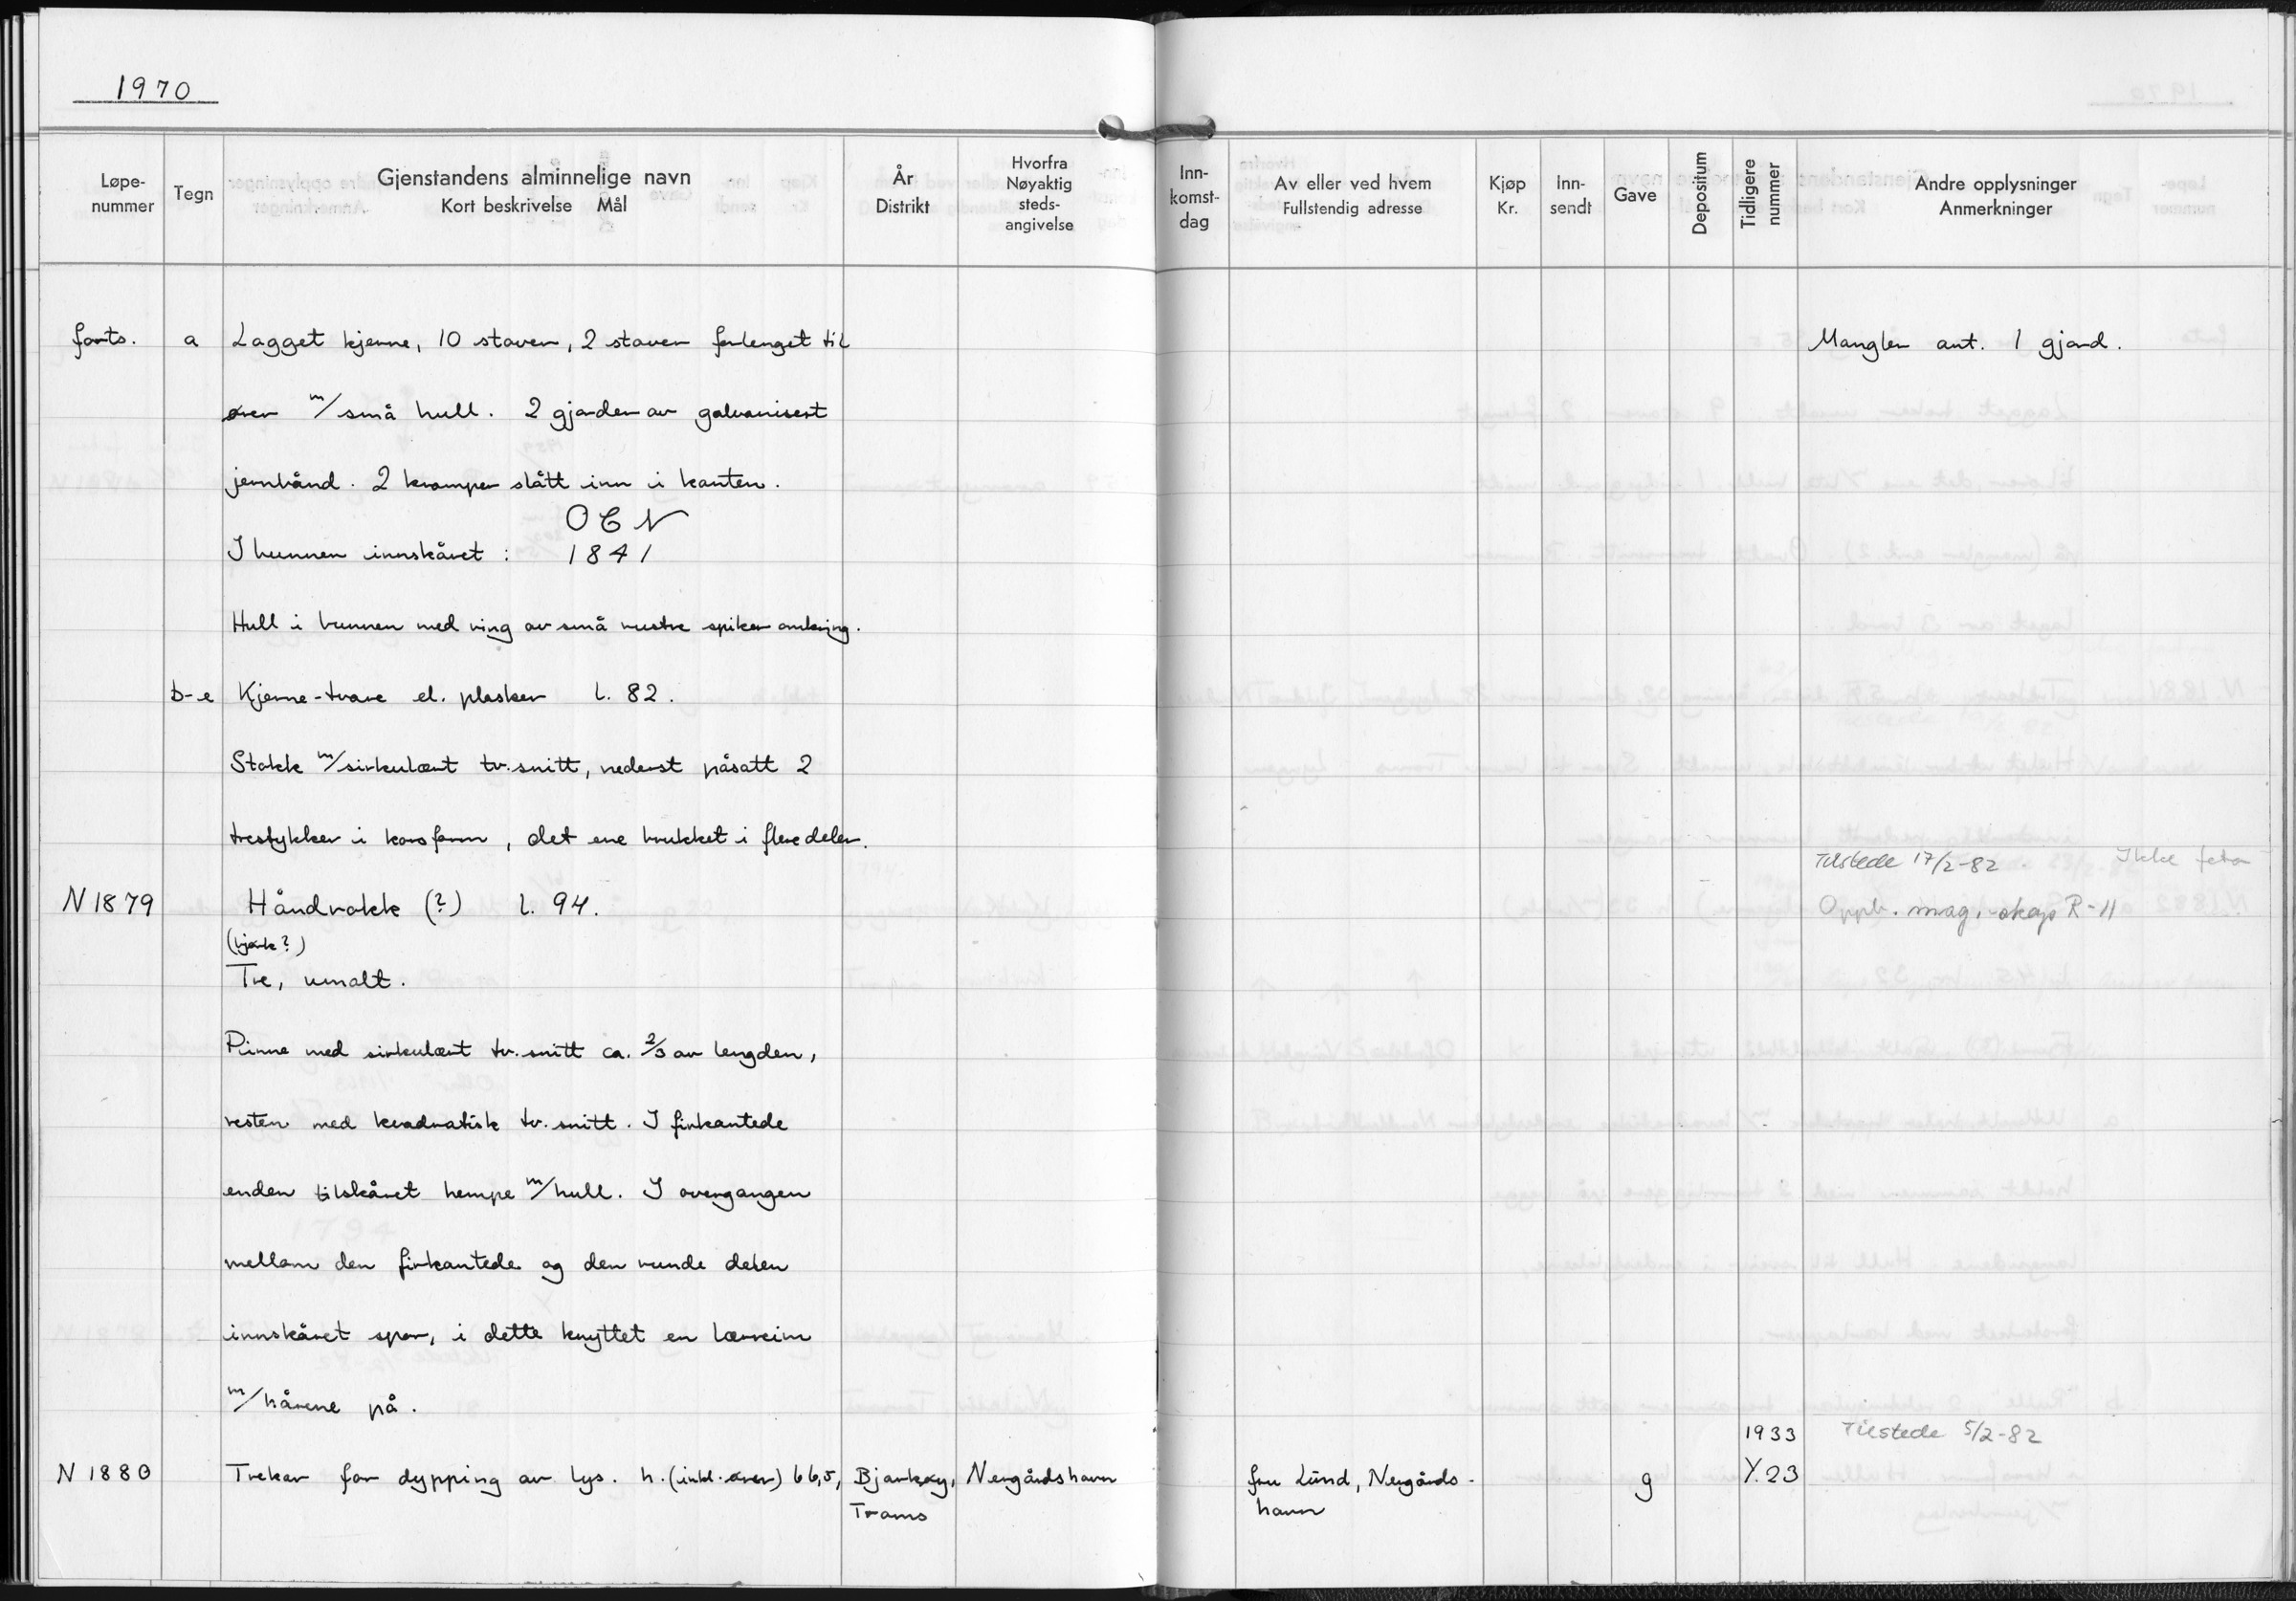 1970
Løpe-nummer
Tegn
Gjenstandens alminnelige navn
Kort beskrivelse Mål
År
Distrikt
Hvorfra
Nøyaktig
steds-
angivelse
Inn-
komst-
dag
Av eller ved hvem
Fullstendig adresse
Kjøp
Kr.
Inn-
sendt
Gave
Depositum
Tidligere
nummer
Andre opplysninger
Anmerkninger
forts. a Lagget kjerne, 10 staver, 2 staver forlenget til Mangler ant. 1 gjord.
ører m/små hull. 2 gjorder av galvanisert
jernbånd. 2 kramper slått inn i kanten.
OEN
I bunnen innskåret : 1841
Hull i bunnen med ring av små rustne spiker omkring.
b-e Kjerne-tvare el. plasker l. 82.
Stokk m/sirkulært tv.snitt, nederst påsatt 2
trestykker i korsform, det ene brukket i flere deler.
Tilstede 17/2-82. Ikke foto
N 1879 Håndrokk (?) l. 94. Oppb. mag. skap R-11
(bjørk?)
Tre, umalt.
Pinne med sirkulært tv.snitt ca. 2/3 av lengden,
resten med kvadratisk tv.snitt. I firkantede
enden tilskåret hempe m/hull. I overgangen
mellom den firkantede og den runde delen
innskåret spor, i dette knyttet en lærreim
m/hårene på.
1933 Tilstede 5/2-82
N 1880 Trekar for dypping av lys. h. (inkl. ører) 66,5, Bjarkøy, Nergårdshavn fru Lund, Nergårds- g Y.23
Troms havn